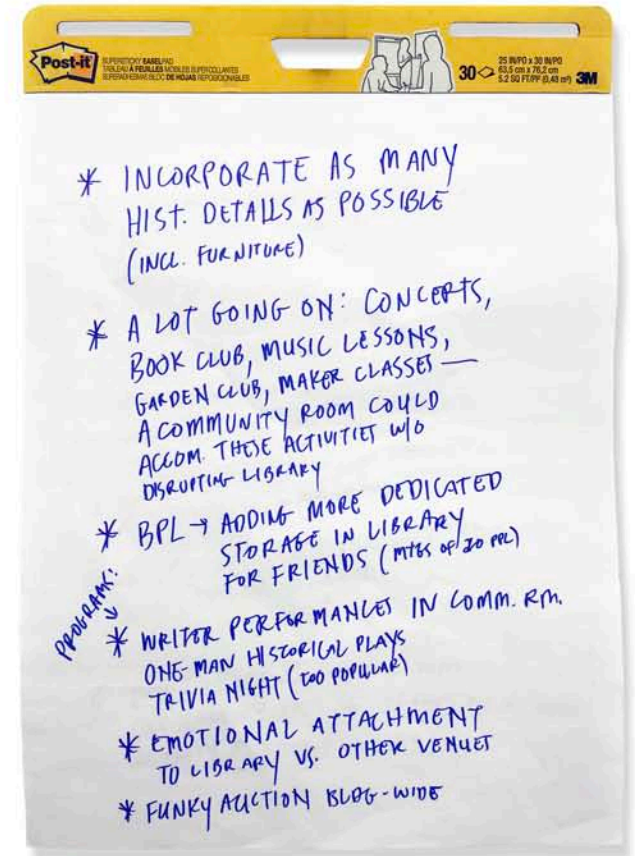 Post-it
SUPERSTICKY EASEL PAD
TABLEAU À FEUILLES MOBILES SUPERCOLLANTES
SUPERADHESIVAS BLOC DE HOJAS REPOSICIONABLES
30
25 IN/PO x 30 IN/PO
63,5 cm x 76,2 cm
5.2 SQ FT/PP (0,48 m²)
3M
* INCORPORATE AS MANY
HIST. DETAILS AS POSSIBLE
(INCL. FURNITURE)
* A LOT GOING ON: CONCERTS,
BOOK CLUB, MUSIC LESSONS,
GARDEN CLUB, MAKER CLASSES —
A COMMUNITY ROOM COULD
ACCOM. THESE ACTIVITIES W/O
DISRUPTING LIBRARY
* BPL → ADDING MORE DEDICATED
STORAGE IN LIBRARY
FOR FRIENDS (MTGS OF 20 PPL)
PROGRAMS: →
* WRITER PERFORMANCES IN COMM. RM.
ONE-MAN HISTORICAL PLAYS
TRIVIA NIGHT (TOO POPULAR)
* EMOTIONAL ATTACHMENT
TO LIBRARY VS. OTHER VENUES
* FUNKY AUCTION BLDG-WIDE